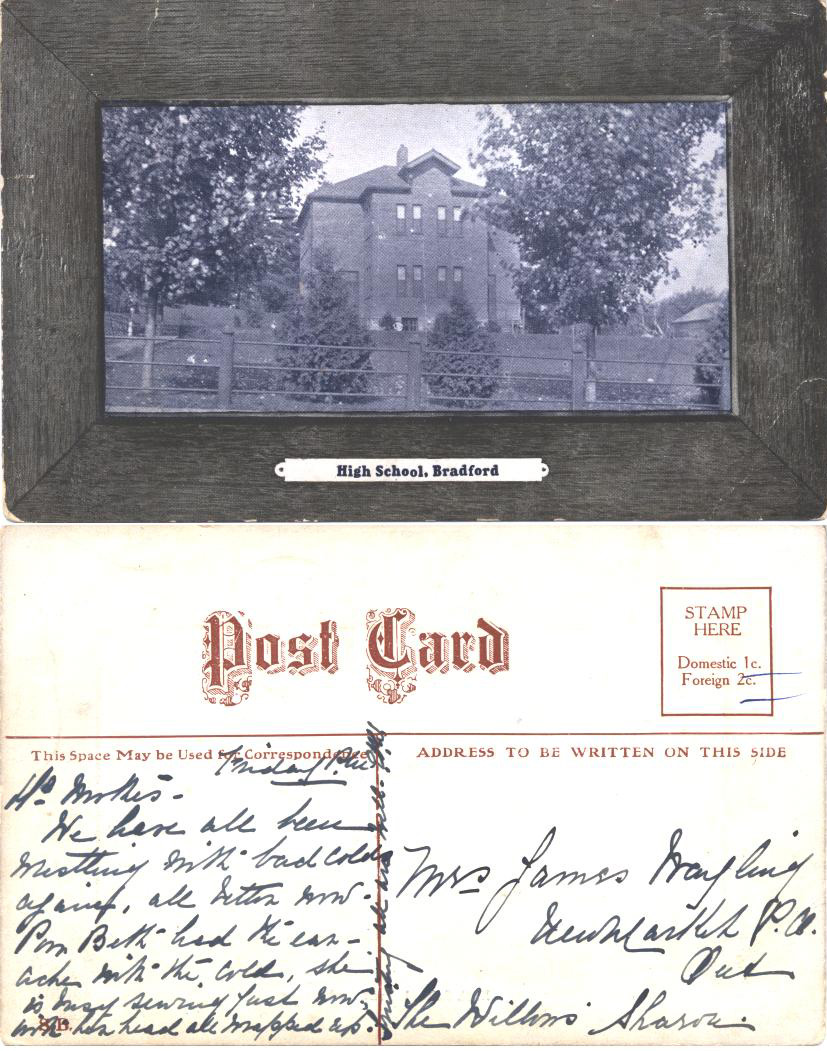 High School, Bradford
Post Card
STAMP
HERE
Domestic 1c.
Foreign 2c.
This Space May be Used for Correspondence
ADDRESS TO BE WRITTEN ON THIS SIDE
Friday
We have all been
with bad colds
again, all better now -
Beth had the ear-
ache with the cold, she
is busy sewing just now
with her head all wrapped up.
S.B.
Mrs James Wayling
Newmarket P.O.
Ont
The Willows Sharon.